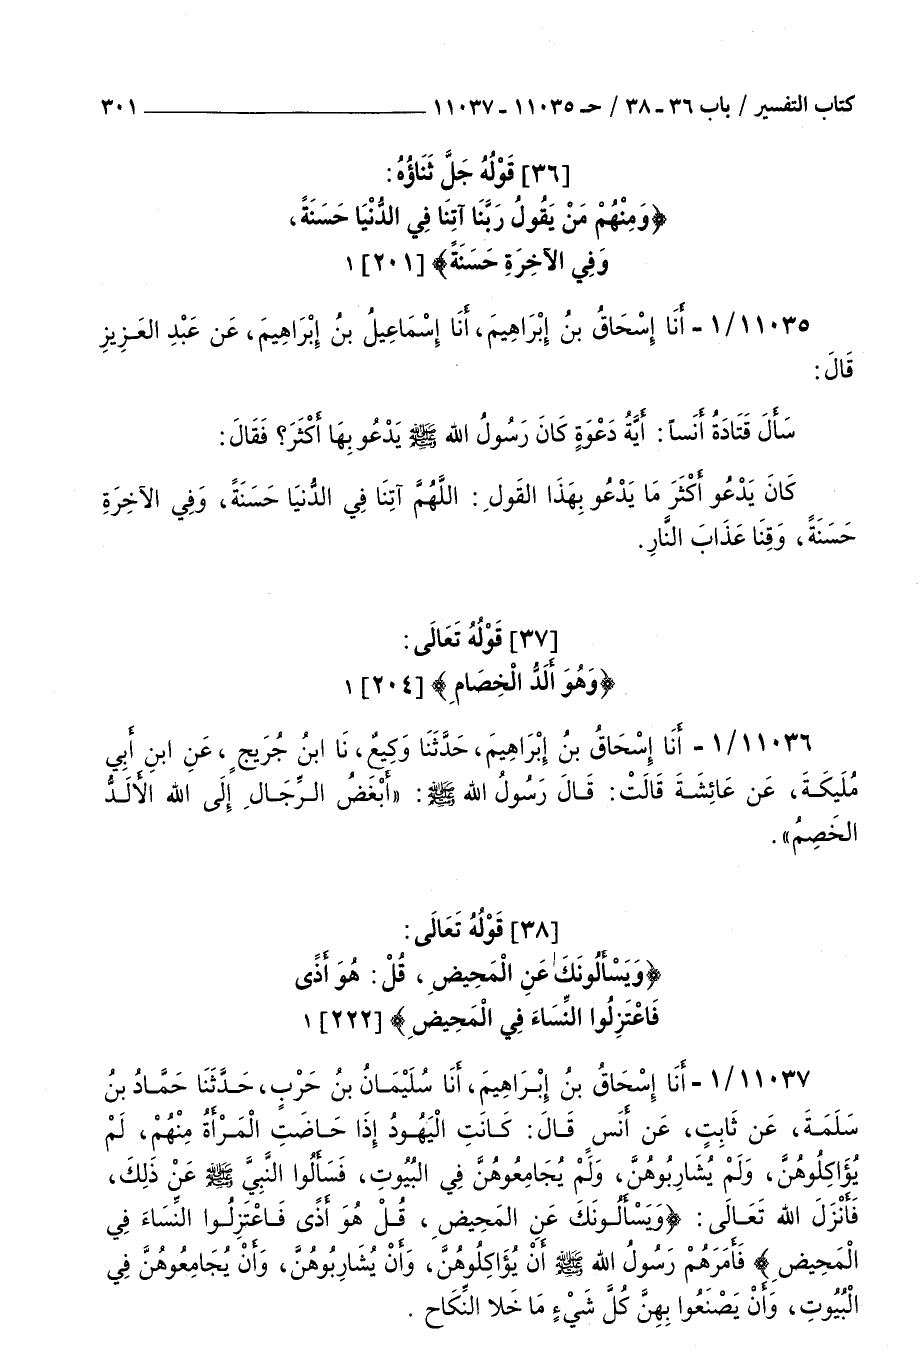 كتاب التفسير / باب ٣٦ - ٣٨ / حـ ١١٠٣٥ - ١١٠٣٧ ٣٠١
[٣٦] قَوْلُهُ جَلَّ ثَنَاؤُهُ:
﴿وَمِنْهُمْ مَنْ يَقُولُ رَبَّنَا آتِنَا فِي الدُّنْيَا حَسَنَةً،
وَفِي الآخِرَةِ حَسَنَةً﴾ [٢٠١] ١
١/١١٠٣٥ - أَنَا إِسْحَاقُ بنُ إِبْرَاهِيمَ، أَنَا إِسْمَاعِيلُ بنُ إِبْرَاهِيمَ، عَن عَبْدِ العَـزِيزِ
قَالَ:
سَأَلَ قَتَادَةُ أَنَساً: أَيَّةُ دَعْوَةٍ كَانَ رَسُولُ الله ﷺ يَدْعُو بِهَا أَكْثَرَ؟ فَقَالَ:
كَانَ يَدْعُو أَكْثَرَ مَا يَدْعُو بِهَذَا القَولِ: اللَّهُمَّ آتِنَا فِي الدُّنْيَا حَسَنَةً، وَفِي الآخِرَةِ
حَسَنَةً، وَقِنَا عَذَابَ النَّارِ.
[٣٧] قَوْلُهُ تَعَالَى:
﴿وَهُوَ أَلَدُّ الْخِصَامِ﴾ [٢٠٤] ١
١/١١٠٣٦ - أَنَا إِسْحَاقُ بنُ إِبْرَاهِيمَ، حَدَّثَنَا وَكِيعٌ، نَا ابنُ جُرَيجٍ، عَنِ ابنِ أَبِي
مُلَيكَـةَ، عَن عَائِشَـةَ قَالَتْ: قَـالَ رَسُولُ الله ﷺ: «أَبْغَضُ الـرِّجَـالِ إِلَى الله الأَلَـدُّ
الخَصِمُ».
[٣٨] قَوْلُهُ تَعَالَى:
﴿وَيَسْأَلُونَكَ عَنِ الْمَحِيضِ، قُلْ: هُوَ أَذًى
فَاعْتَزِلُوا النِّسَاءَ فِي الْمَحِيضِ﴾ [٢٢٢] ١
١/١١٠٣٧ - أَنَا إِسْحَاقُ بنُ إِبْـرَاهِيمَ، أَنَا سُلَيْمَـانُ بنُ حَرْبٍ، حَـدَّثَنَا حَمَّـادُ بنُ
سَلَمَـةَ، عَن ثَابِتٍ، عَن أَنَسٍ قَـالَ: كَـانَتِ الْيَهُودُ إِذَا حَـاضَتِ الْمَـرْأَةُ مِنْهُمْ، لَمْ
يُؤَاكِلُوهُنَّ، وَلَمْ يُشَارِبُوهُنَّ، وَلَمْ يُجَامِعُوهُنَّ فِي البُيُوتِ، فَسَأَلُوا النَّبِيَّ ﷺ عَنْ ذَلِكَ،
فَأَنْزَلَ الله تَعَـالَى: ﴿وَيَسْأَلُـونَكَ عَنِ المَحِيضِ، قُـلْ هُوَ أَذًى فَـاعْتَزِلُـوا النِّسَاءَ فِي
الْمَحِيضِ﴾ فَأَمَرَهُمْ رَسُولُ الله ﷺ أَنْ يُؤَاكِلُوهُنَّ، وَأَنْ يُشَارِبُوهُنَّ، وَأَنْ يُجَامِعُوهُنَّ فِي
الْبُيُوتِ، وَأَنْ يَصْنَعُوا بِهِنَّ كُلَّ شَيْءٍ مَا خَلَا النِّكَاحِ.